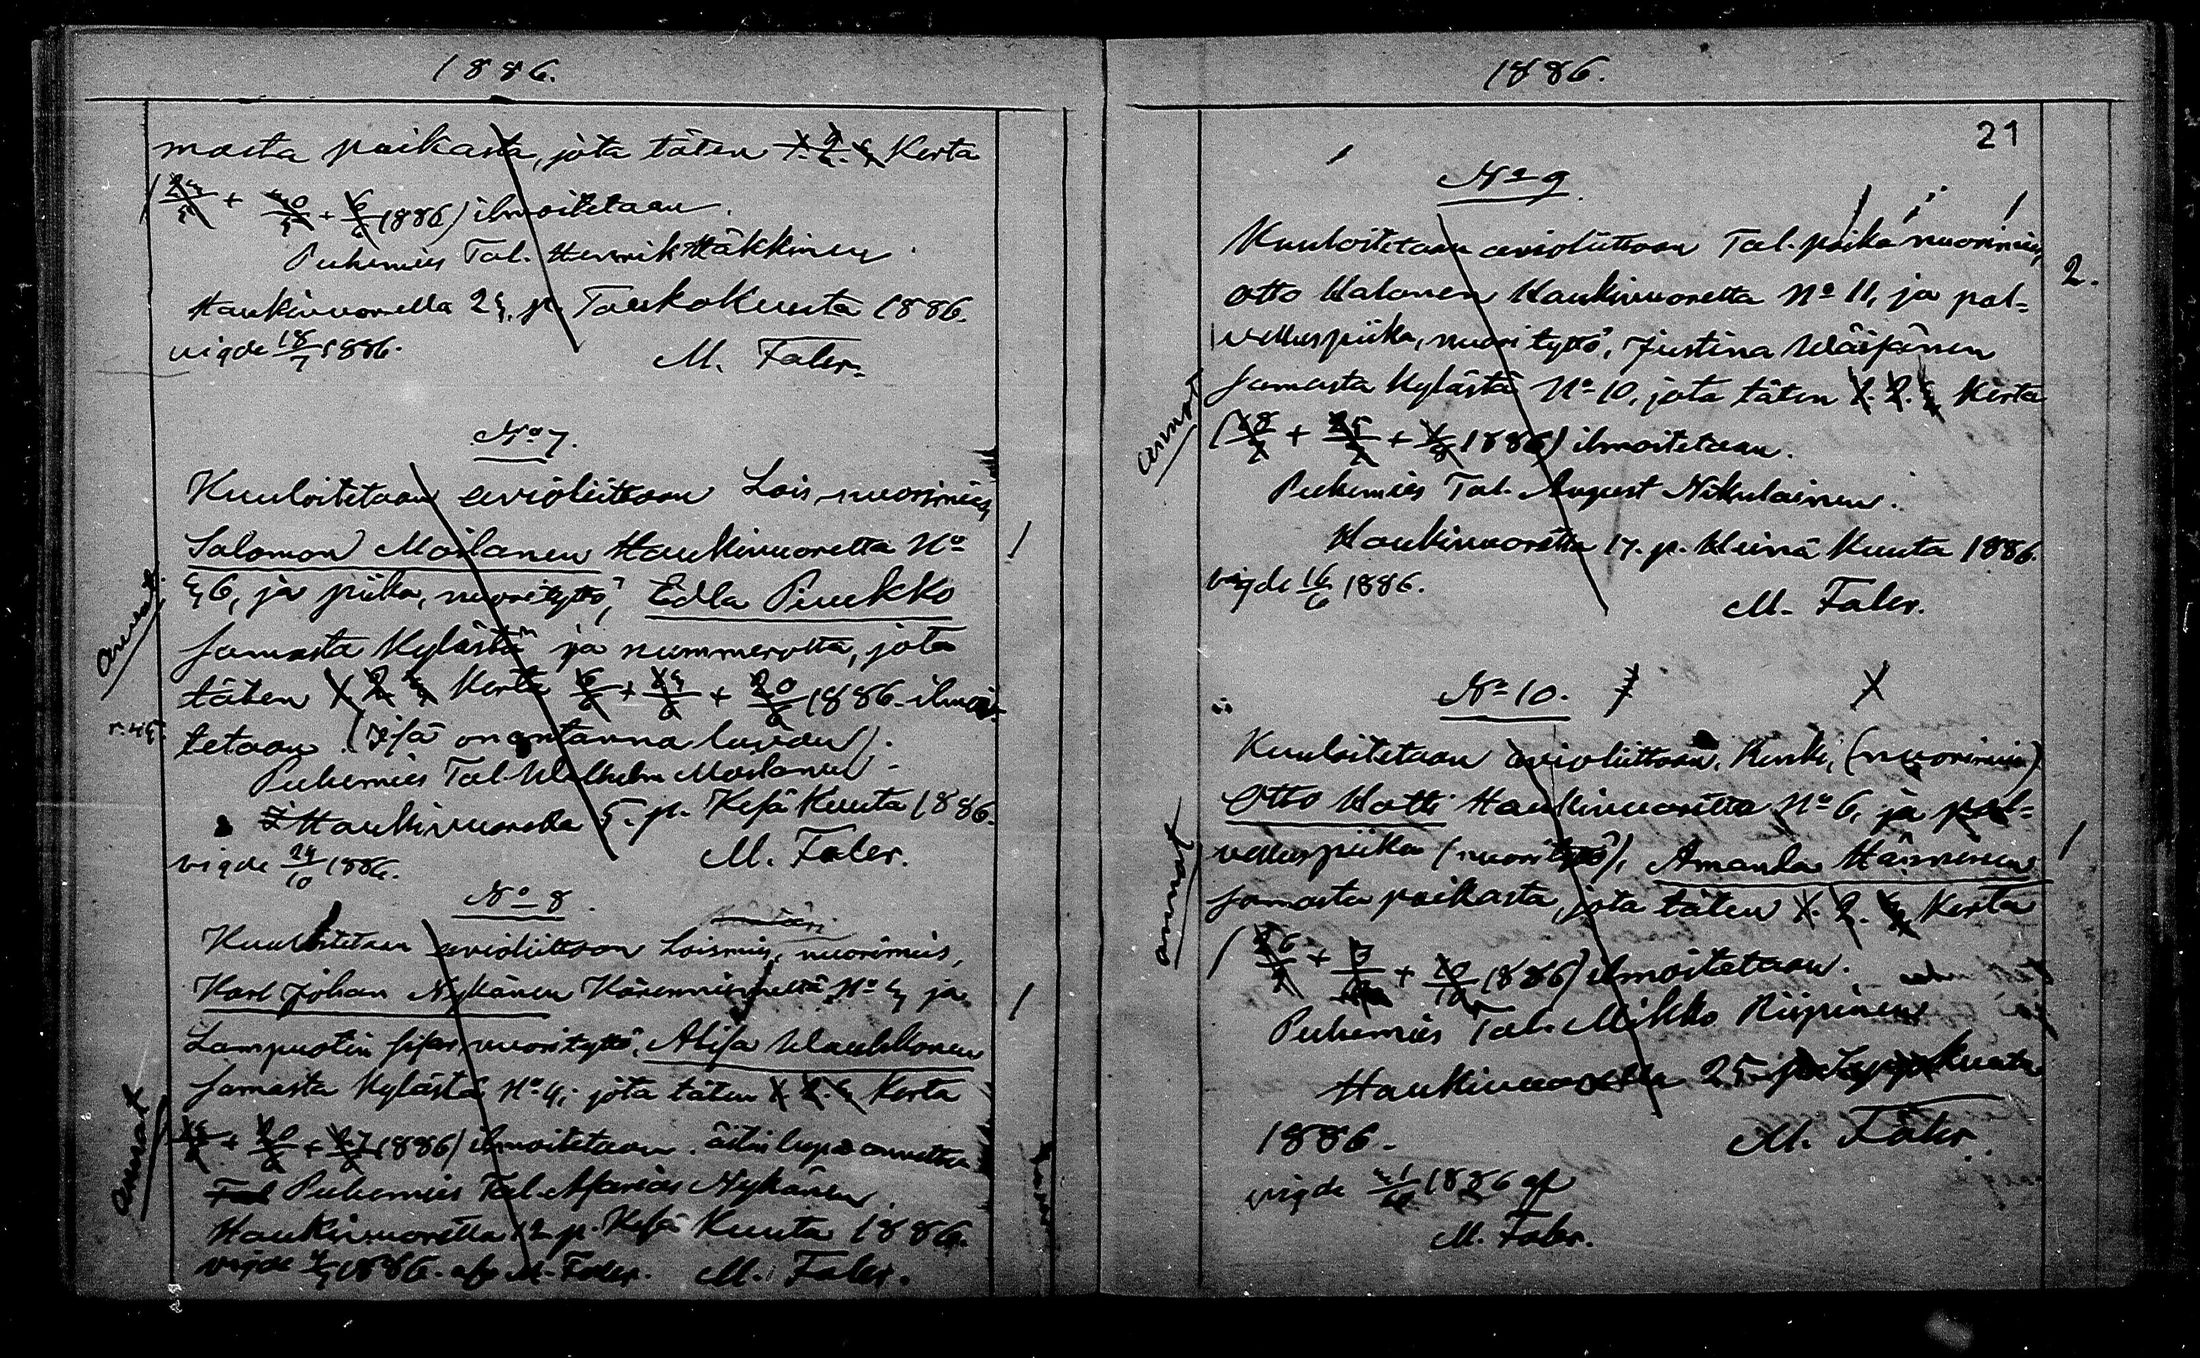 1886.
masta paikasta, jota täten 1. 2. 3 Kerta
1886) ilmoitetaan.
Puhemies Tal. Henrik Häkkinen
Haukivuorella 23. p. Toukokuuta 1886.
vigde 18/7 1886.
M. Faler.
No 7.
Kuuloitetaan avioliittoon Lois nuorimies
Salomon Moilanen Haukivuorelta No
36, ja piika, nuorityttö, Edla Puukko
samasta Kylästä ja nummerolta, jota
annat.
täten 1 2 3 Kerta 6/6 + 13/6 + 20/6 1886 ilmoi-
tetaan. (Isä on antanna luvan).
Puhemies Tal. Wilhelm Moilanen.
Haukivuorella 5. p. Kesä Kuuta 1886.
vigde 24/10 1886.
M. Faler.
No 8.
Kuuloitetaan avioliittoon Loismies, nuorimies,
Karl Johan Nykänen No 3 ja
nuorityttö, Alisa Waukkonen
samasta Kylästä No 4; jota täten 1 2. 3 Kerta
1886) ilmoitetaan. äitin lupa annettu
annat
Puhemies Tal. Nykänen.
Haukivuorella 12 p. Kesä Kuuta 1886.
vigde 1886. af M. Faler. M. Faler.
1886.
21
No 9
Kuuloitetaan avioliittoon Tal. poika nuorimies,
2.
Otto Valonen Haukivuorelta No 11, ja pal-
velluspiika, nuorityttö, Justina Wäisänen
samasta Kylästä No 10, jota täten 1. 2. 3 Kerta
annat
(18/7 + 25/7 + 1/8 1886) ilmoitetaan.
Puhemies Tal. August Nikulainen.
Haukivuorella 17. p. Heinä Kuuta 1886.
vigde 16/6 1886.
M. Faler.
No 10.
Kuuloitetaan avioliittoon, Renki, (nuorimies)
Otto Matti Haukivuorelta No 6, ja pal-
velluspiika (nuorityttö), Amanda Hänninen
annat
samasta paikasta, jota täten 1. 2. 3 Kerta
(26/9 + 3/10 + 10/10 1886) ilmoitetaan.
Puhemies Tal. Mikko Riipinen
Haukivuorella 25 p. Syys Kuuta
1886.
M. Faler.
vigde 31/10 1886 af
M. Faler.